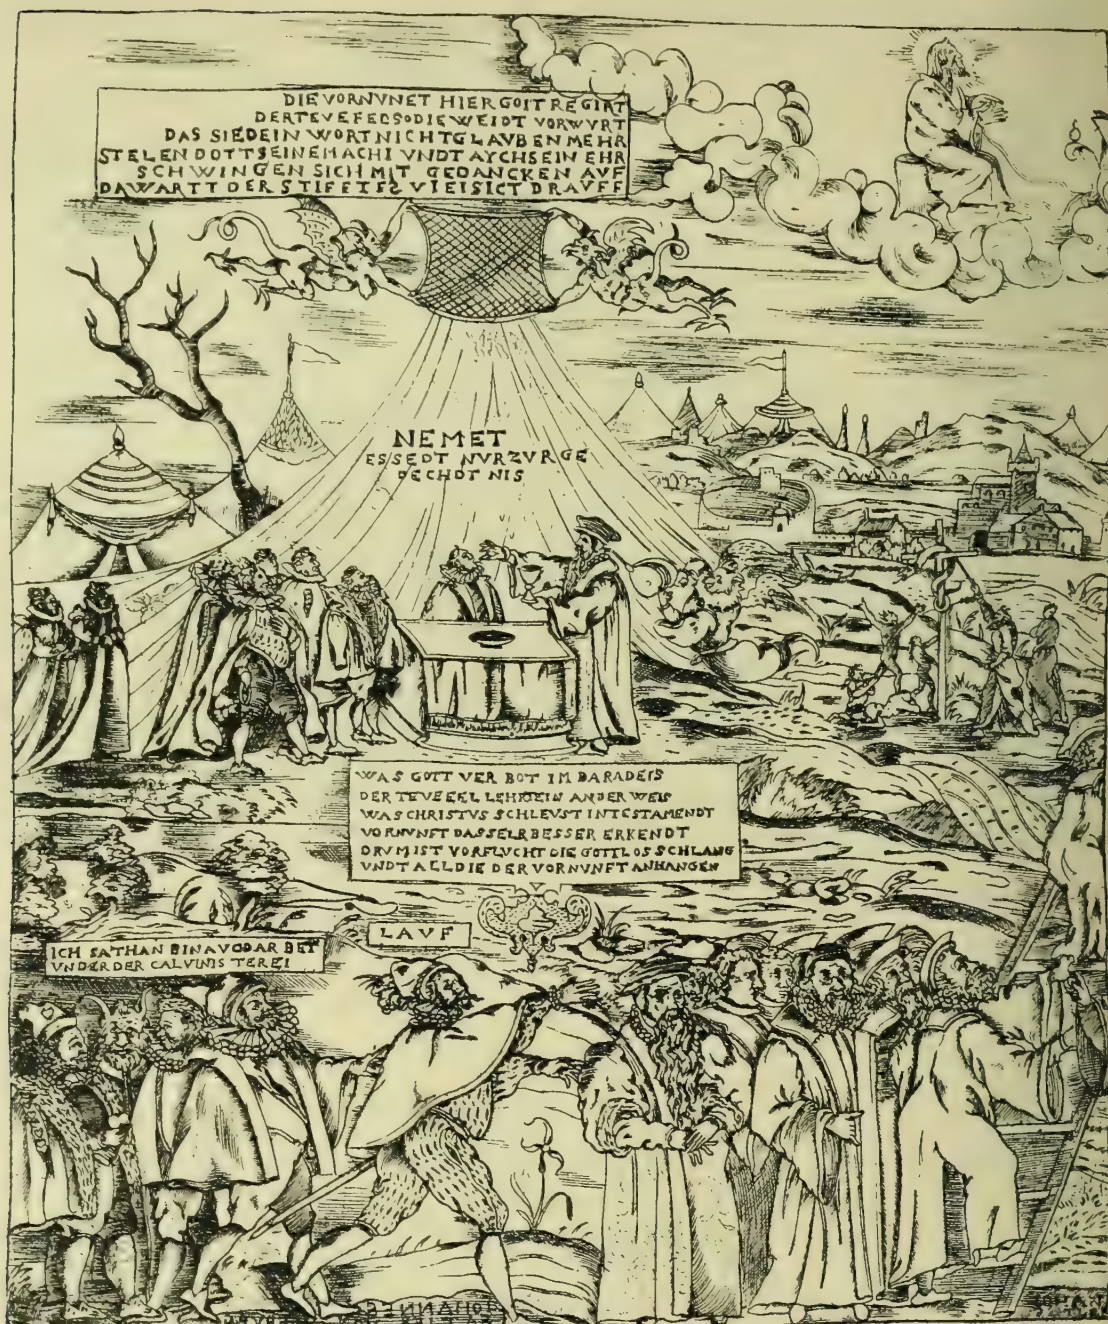 DIE VORNVNET HIER GOIT REGIRT
DER TEVEFEC SO DIE WEIDT VORWVRT
DAS SIE DEIN WORT NICHT GLAVBEN MEHR
STELEN DOTT SEINE MACHI VNDT AYCH SEIN EHR
SCHWINGEN SICH MIT GEDANCKEN AVF
DA WARTT DER DRAVFF
NEMET
ESSEDT NVR ZVR GE
DECHDTNIS
WAS GOTT VER BOT IM BARADEIS
DER TEVEFEL LEHRT EIN ANDER WEIS
WAS CHRISTVS SCHLEVST IN TESTAMENDT
VORNVNFT DASSELB BESSER ERKENDT
DRVM IST VORFLVCHT DIE GOTTLOS SCHLANG
VNDT ALL DIE DER VORNVNFT ANHANGEN
LAVF
ICH SATHAN BIN AVO DAR BEI
VNDER DER CALVINISTEREI
IOHANNES